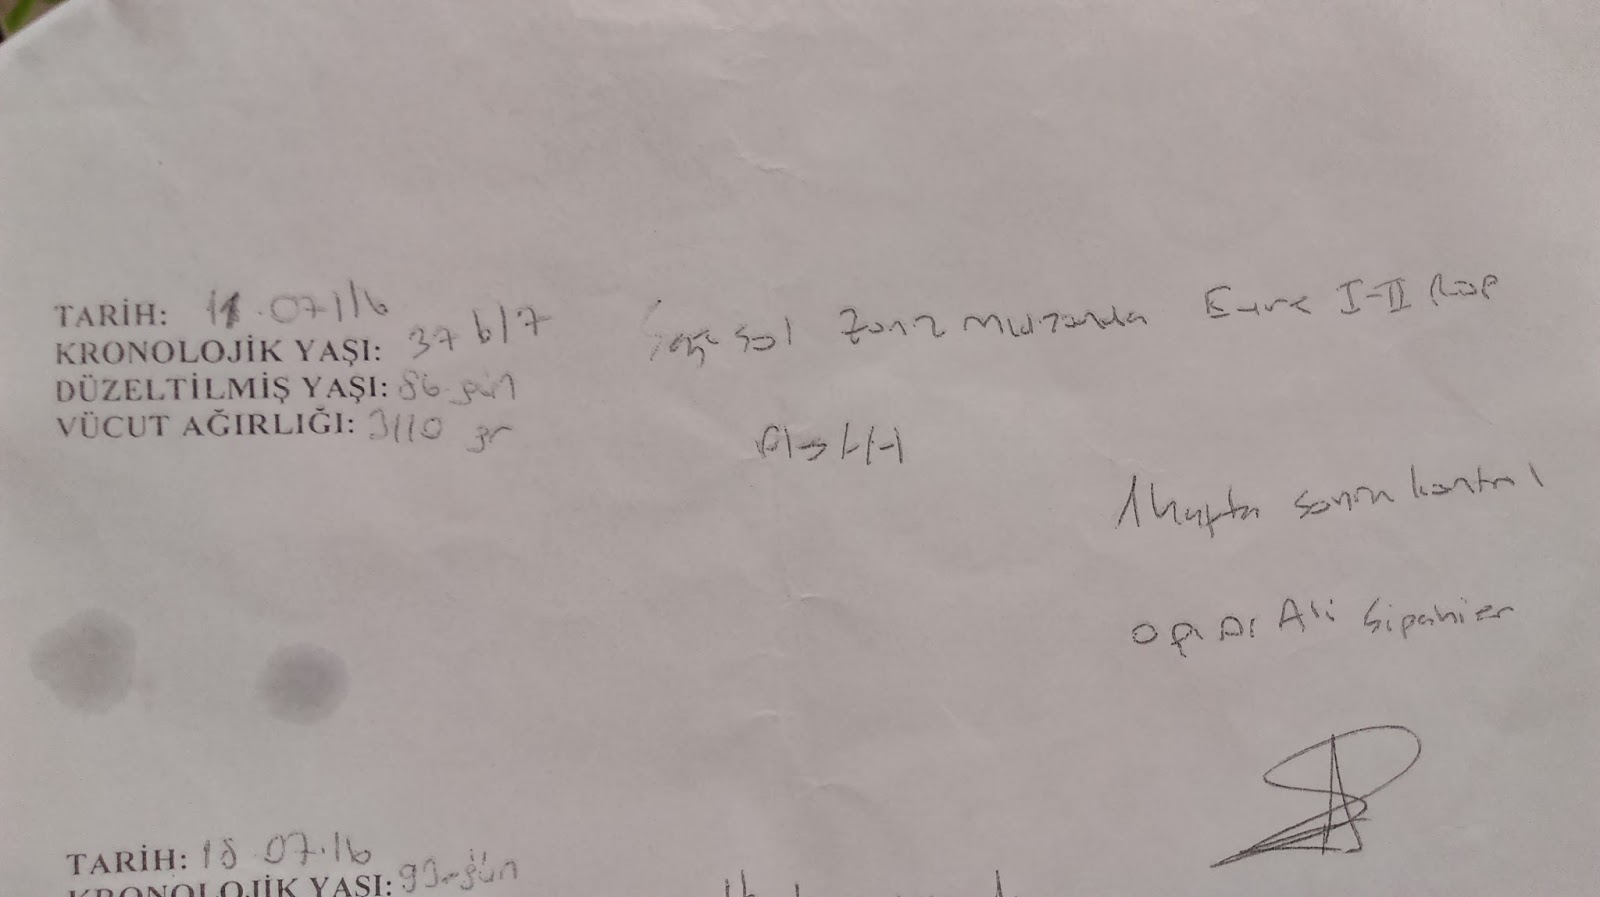 TARİH: 11.07.16
KRONOLOJİK YAŞI: 37 6/7
DÜZELTİLMİŞ YAŞI: 86. gün
VÜCUT AĞIRLIĞI: 3110 gr
sol Zon 2 Evre I-II Rop
1 hafta sonra kontrol
Op. Dr Ali Sipahier
TARİH: 18.07.16
KRONOLOJİK YAŞI: 93. gün